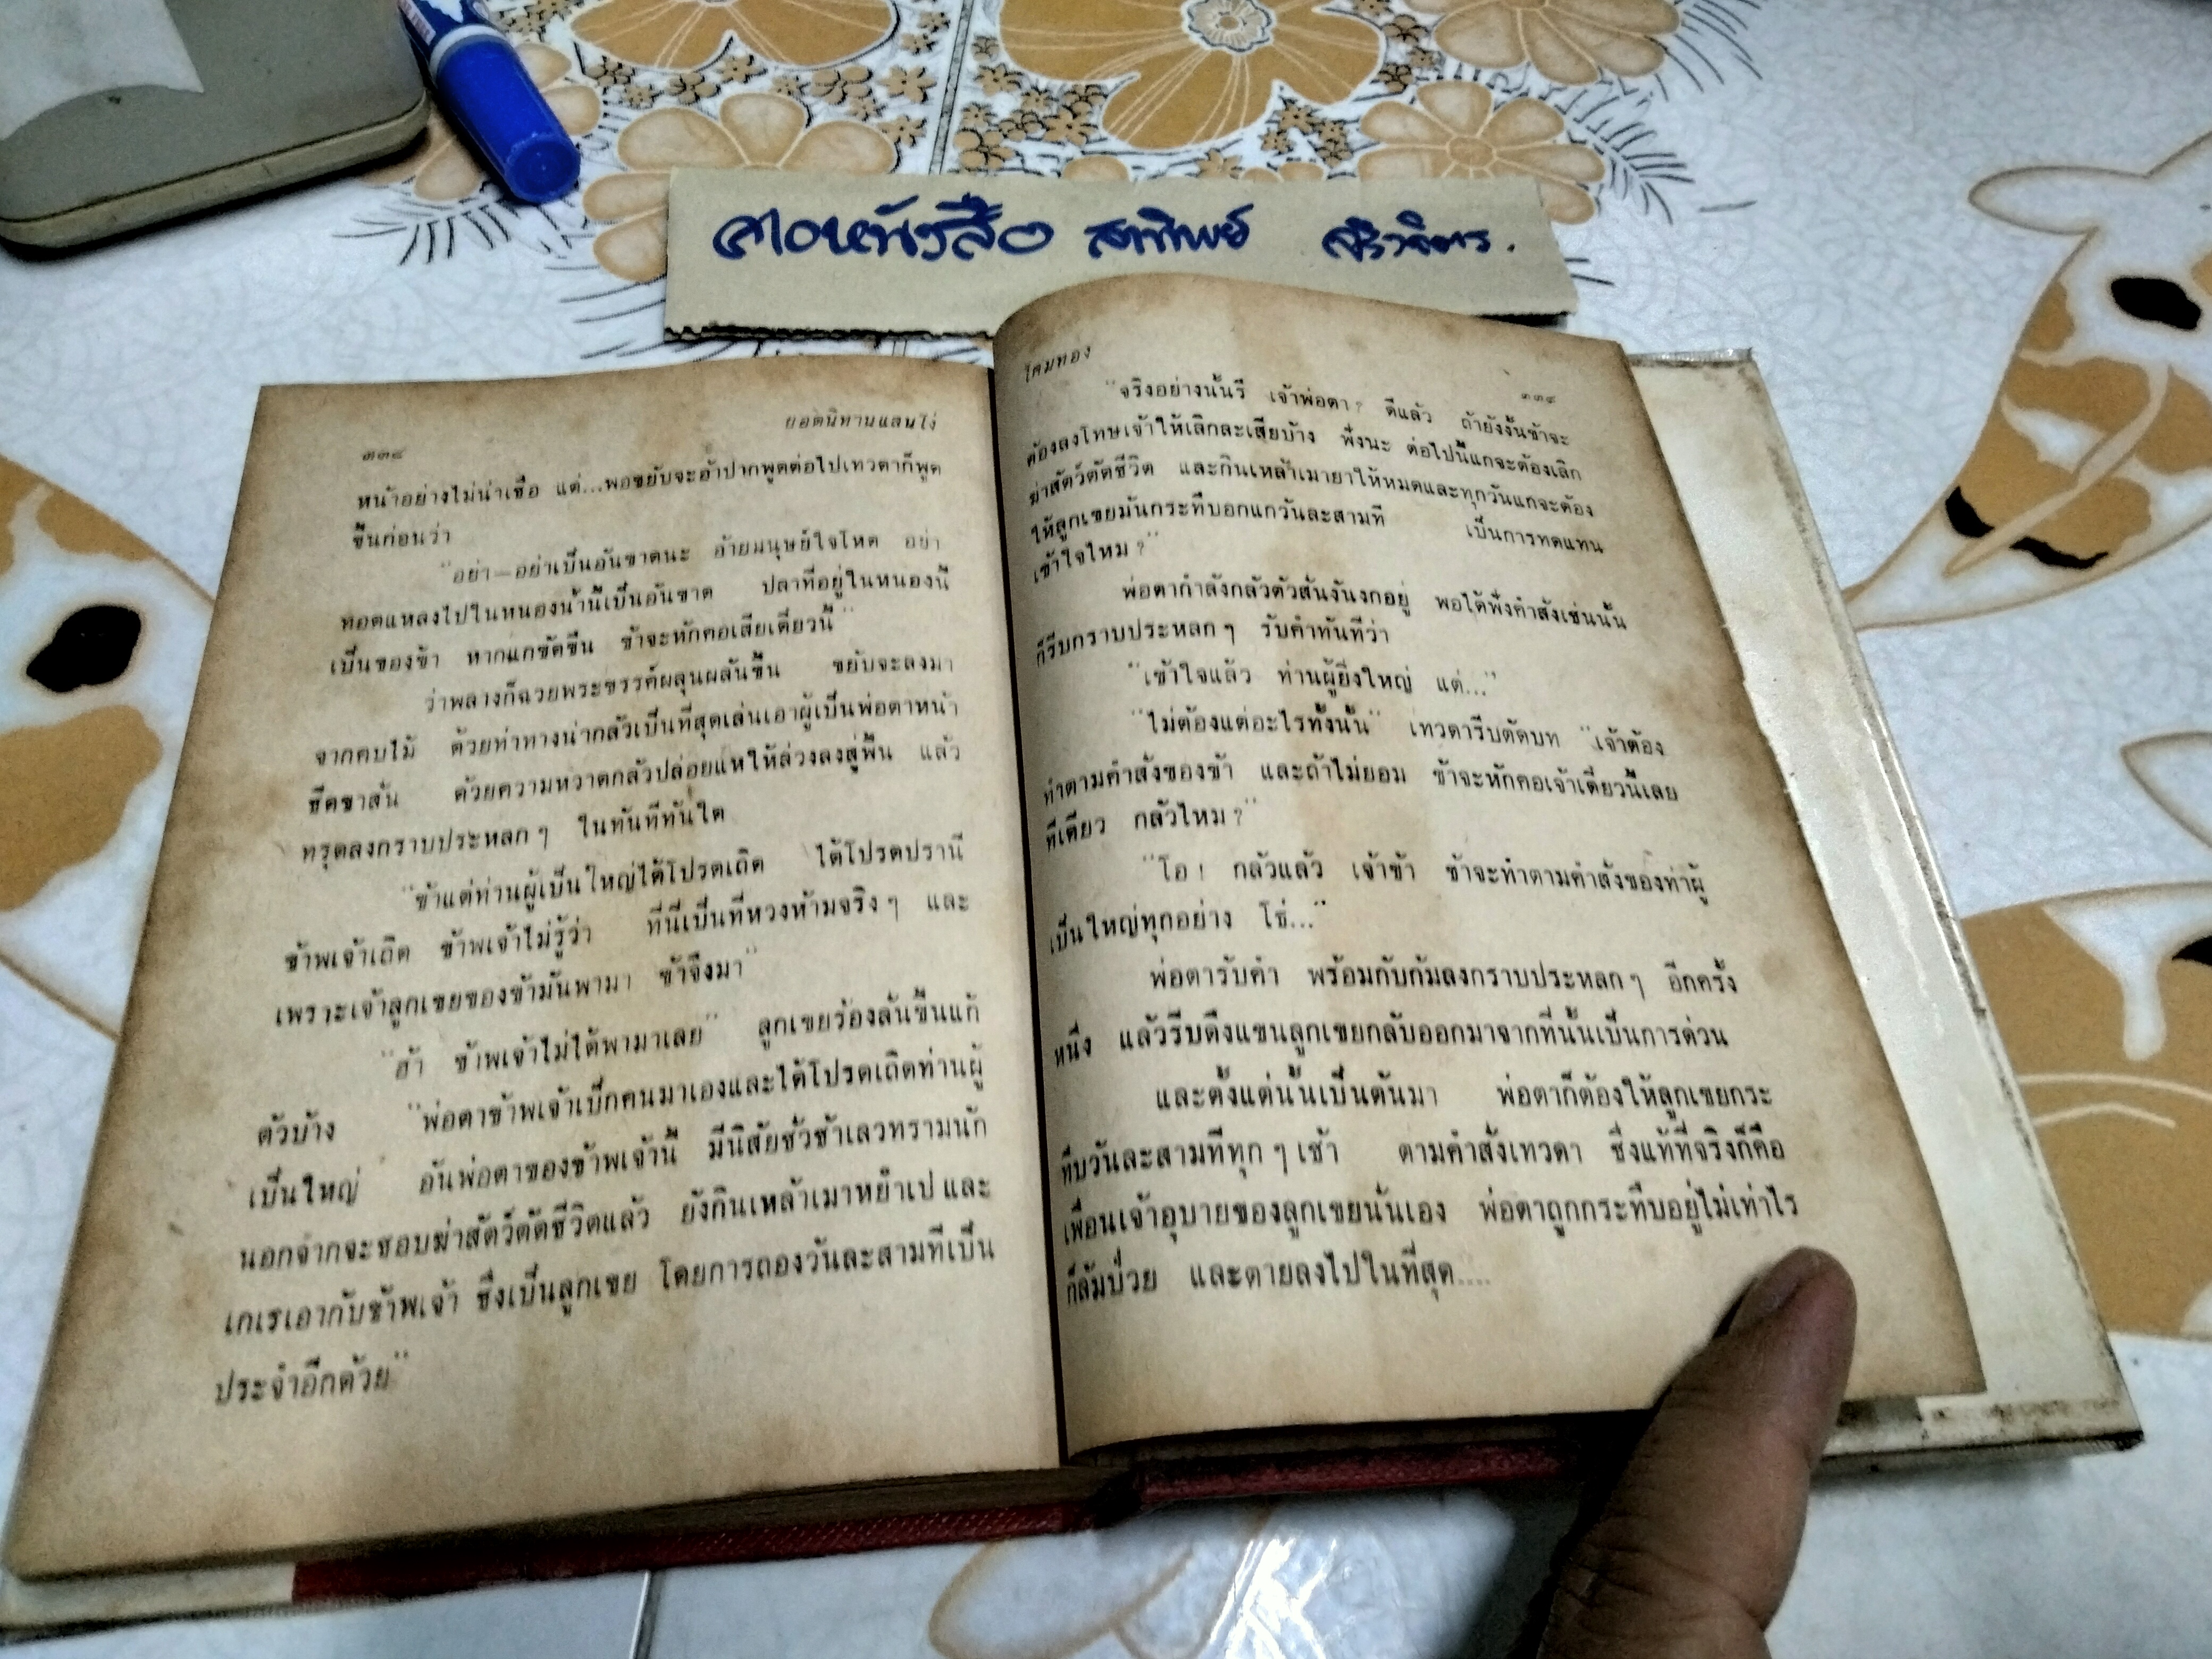 สาทิพย์
๓๓๔
ยอดนิทานแสนโง่
หน้าอย่างไม่น่าเชื่อ แต่...พอขยับจะอ้าปากพูดต่อไปเทวดาก็พูด
ขึ้นก่อนว่า
"อย่า—อย่าเป็นอันขาดนะ อ้ายมนุษย์ใจโหด อย่า
ทอดแหลงไปในหนองน้ำนี้เป็นอันขาด ปลาที่อยู่ในหนองนี้
เป็นของข้า หากแกขัดขืน ข้าจะหักคอเสียเดี๋ยวนี้"
ว่าพลางก็ฉวยพระขรรค์ผลุนผลันขึ้น ขยับจะลงมา
จากคบไม้ ด้วยท่าทางน่ากลัวเป็นที่สุดเล่นเอาผู้เป็นพ่อตาหน้า
ซีดขาสั่น ด้วยความหวาดกลัวปล่อยแหให้ล่วงลงสู่พื้น แล้ว
ทรุดลงกราบประหลกๆ ในทันทีทันใด
"ข้าแต่ท่านผู้เป็นใหญ่ได้โปรดเถิด ได้โปรดปรานี
ข้าพเจ้าเถิด ข้าพเจ้าไม่รู้ว่า ที่นี่เป็นที่หวงห้ามจริงๆ และ
เพราะเจ้าลูกเขยของข้ามันพามา ข้าจึงมา"
"ฮ้า ข้าพเจ้าไม่ได้พามาเลย" ลูกเขยร้องลั่นขึ้นแก้
ตัวบ้าง "พ่อตาข้าพเจ้าเบิ๊กคนมาเองและได้โปรดเถิดท่านผู้
เป็นใหญ่ อันพ่อตาของข้าพเจ้านี้ มีนิสัยชั่วช้าเลวทรามนัก
นอกจากจะชอบฆ่าสัตว์ตัดชีวิตแล้ว ยังกินเหล้าเมาหยำเป และ
เกเรเอากับข้าพเจ้า ซึ่งเป็นลูกเขย โดยการถองวันละสามทีเป็น
ประจำอีกด้วย"
โคมทอง
๓๓๕
"จริงอย่างนั้นรึ เจ้าพ่อตา? ดีแล้ว ถ้ายังงั้นข้าจะ
ต้องลงโทษเจ้าให้เลิกละเสียบ้าง ฟังนะ ต่อไปนี้แกจะต้องเลิก
ฆ่าสัตว์ตัดชีวิต และกินเหล้าเมายาให้หมดและทุกวันแกจะต้อง
ให้ลูกเขยมันกระทืบอกแกวันละสามที เป็นการทดแทน
เข้าใจไหม?"
พ่อตากำลังกลัวตัวสั่นงันงกอยู่ พอได้ฟังคำสั่งเช่นนั้น
ก็รีบกราบประหลกๆ รับคำทันทีว่า
"เข้าใจแล้ว ท่านผู้ยิ่งใหญ่ แต่..."
"ไม่ต้องแต่อะไรทั้งนั้น" เทวดารีบตัดบท "เจ้าต้อง
ทำตามคำสั่งของข้า และถ้าไม่ยอม ข้าจะหักคอเจ้าเดี๋ยวนี้เลย
ทีเดียว กลัวไหม?"
"โอ! กลัวแล้ว เจ้าข้า ข้าจะทำตามคำสั่งของท่าผู้
เป็นใหญ่ทุกอย่าง โธ่..."
พ่อตารับคำ พร้อมกับก้มลงกราบประหลกๆ อีกครั้ง
หนึ่ง แล้วรีบดึงแขนลูกเขยกลับออกมาจากที่นั้นเป็นการด่วน
และตั้งแต่นั้นเป็นต้นมา พ่อตาก็ต้องให้ลูกเขยกระ
ทืบวันละสามทีทุกๆ เช้า ตามคำสั่งเทวดา ซึ่งแท้ที่จริงก็คือ
เพื่อนเจ้าอุบายของลูกเขยนั่นเอง พ่อตาถูกกระทืบอยู่ไม่เท่าไร
ก็ล้มป่วย และตายลงไปในที่สุด....